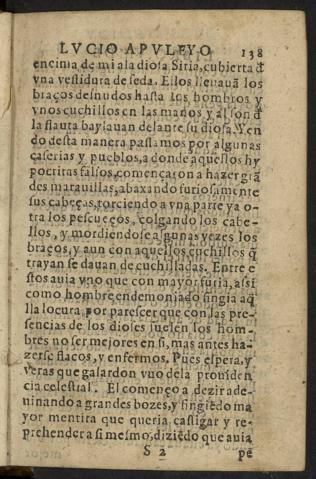 LVCIO APVLEYO 138
encima de mi a la diosa Siria, cubierta đ
vna vestidura de seda. Ellos lleuauã los
braços desnudos hasta los hombros y
vnos cuchillos en las manos y al son đ
la flauta baylauan delante su diosa. Yen
do desta manera passamos por algunas
caserias y pueblos, a donde aquellos hy
pocritas falsos, començaron a hazer grã
des marauillas, abaxando furiosamente
sus cabeças, torciendo a vna parte ya o-
tra los pescueços, colgando los cabe-
llos, y mordiendose algunas vezes los
braços, y aun con aquellos cuchillos q̃
trayan se dauan de cuchilladas. Entre e
stos auia vno que con mayor furia, assi
como hombre endemoniado fingia aq̃
lla locura por parescer que con las pre-
sencias de los dioses suelen los hom-
bres no ser mejores en si, mas antes ha-
zerse flacos, y enfermos. Pues espera, y
veras que galardon vuo de la prouiden
cia celestial. El començo a dezir ade-
uinando a grandes bozes, y fingiẽdo ma
yor mentira que queria castigar y re-
prehender a si mesmo, diziẽdo que auia
S 2 pe